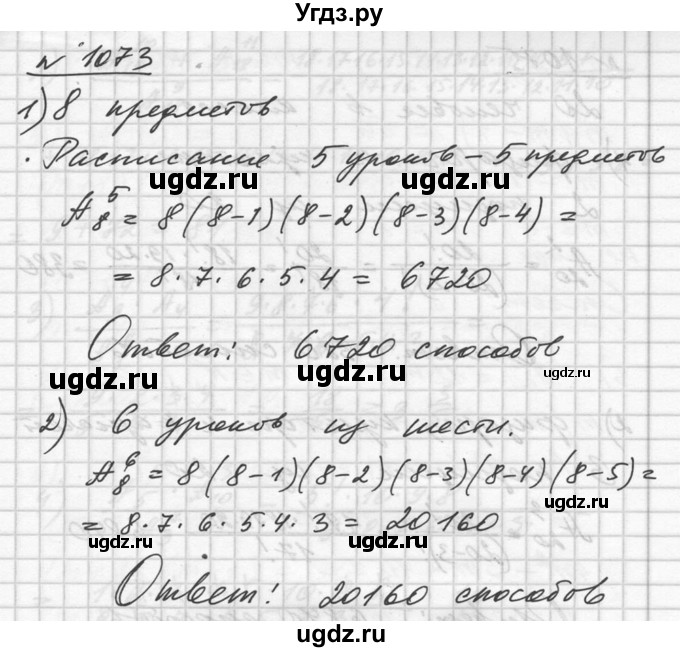 Угдз.ру
№ 1073
1) 8 предметов
. Расписание 5 уроков – 5 предметов
ugdz.ru ugdz.ru
A₈⁵ = 8(8-1)(8-2)(8-3)(8-4) =
= 8·7·6·5·4 = 6720
Ответ: 6720 способов
ugdz.ru ugdz.ru ugdz.ru
2) 6 уроков из шести.
A₈⁶ = 8(8-1)(8-2)(8-3)(8-4)(8-5) =
ugdz.ru
= 8·7·6·5·4·3 = 20160
ugdz.ru ugdz.ru
Ответ: 20160 способов
ugdz.ru ugdz.ru
ugdz.ru